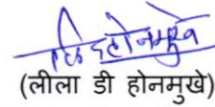 (लीला डी होनमुखे)